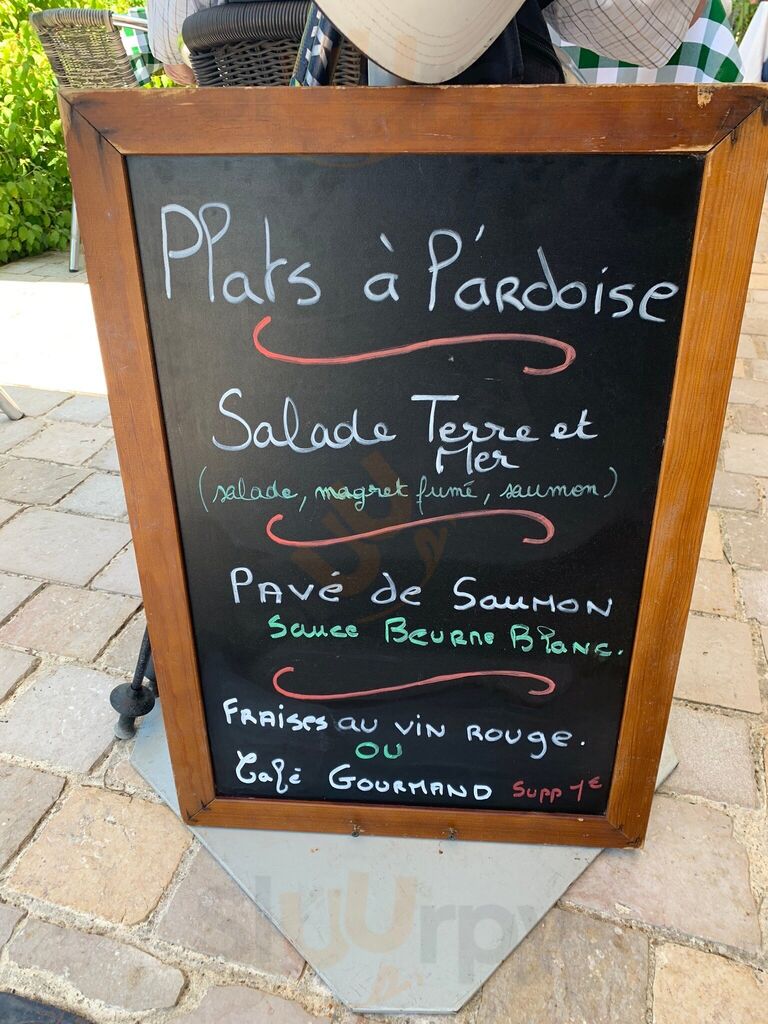 Plats à l'ardoise
Salade Terre et
Mer
(salade, magret fumé, saumon)
Pavé de Saumon
Sauce Beurre Blanc.
Fraises au vin rouge.
ou
Café Gourmand Supp 1€
sluurpy